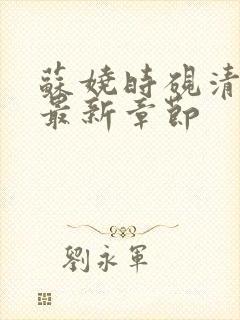 蘇嬈時硯清
最新章節
劉永軍